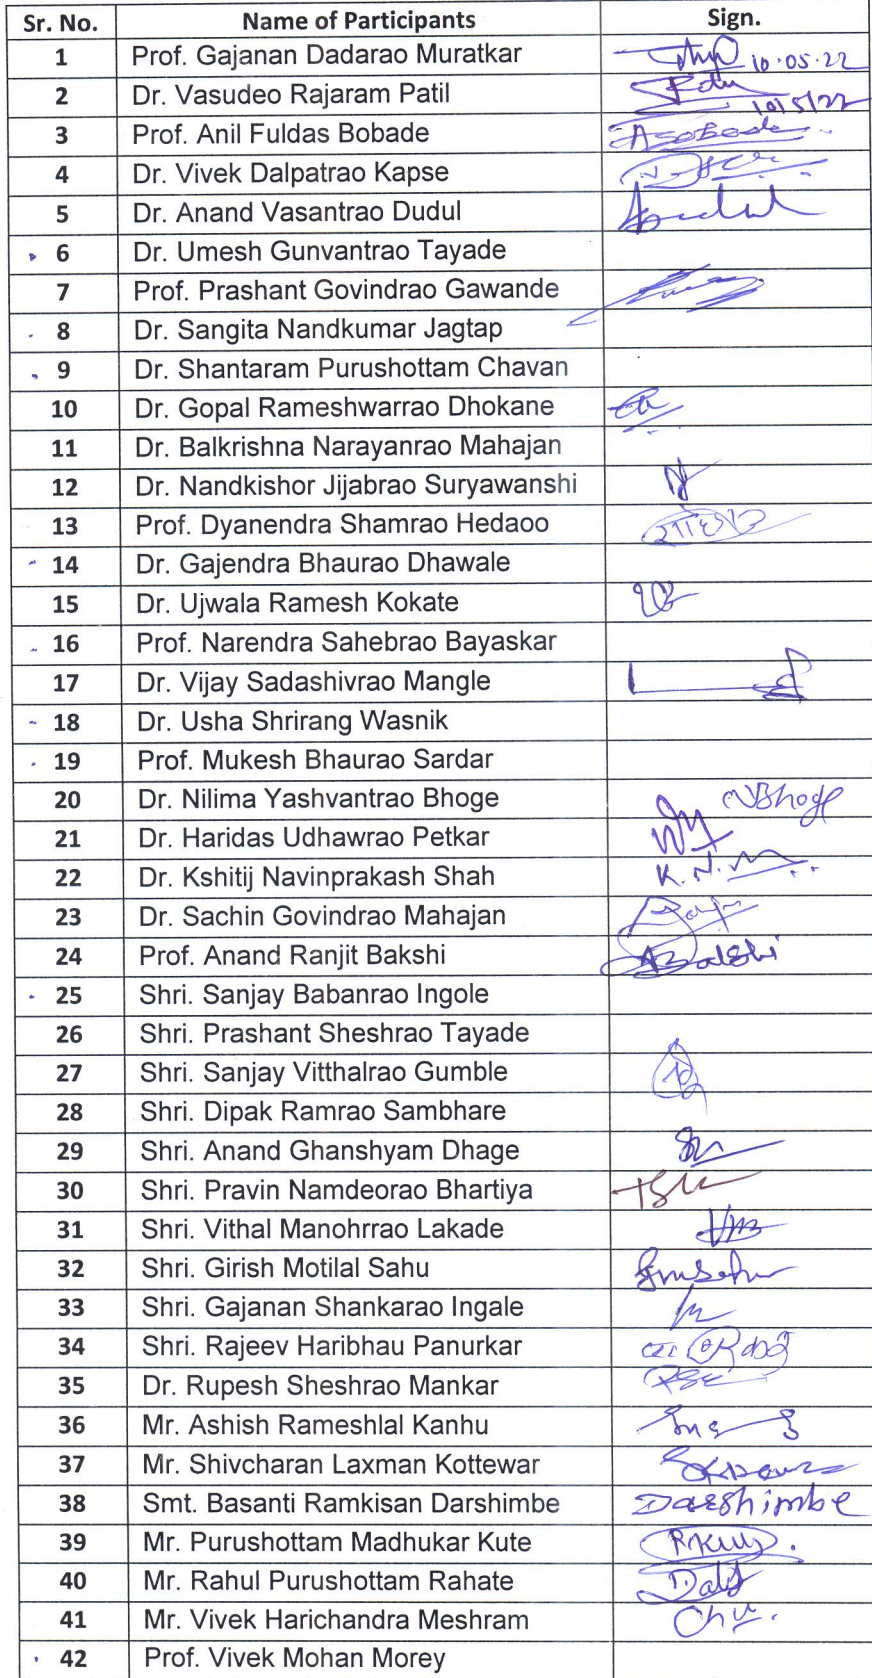 Sr. No. Name of Participants Sign.
1 Prof. Gajanan Dadarao Muratkar 10.05.22
2 Dr. Vasudeo Rajaram Patil 10/5/22
3 Prof. Anil Fuldas Bobade ASBobade
4 Dr. Vivek Dalpatrao Kapse
5 Dr. Anand Vasantrao Dudul
6 Dr. Umesh Gunvantrao Tayade
7 Prof. Prashant Govindrao Gawande
8 Dr. Sangita Nandkumar Jagtap
9 Dr. Shantaram Purushottam Chavan
10 Dr. Gopal Rameshwarrao Dhokane
11 Dr. Balkrishna Narayanrao Mahajan
12 Dr. Nandkishor Jijabrao Suryawanshi
13 Prof. Dyanendra Shamrao Hedaoo
14 Dr. Gajendra Bhaurao Dhawale
15 Dr. Ujwala Ramesh Kokate
16 Prof. Narendra Sahebrao Bayaskar
17 Dr. Vijay Sadashivrao Mangle
18 Dr. Usha Shrirang Wasnik
19 Prof. Mukesh Bhaurao Sardar
20 Dr. Nilima Yashvantrao Bhoge NBhoge
21 Dr. Haridas Udhawrao Petkar
22 Dr. Kshitij Navinprakash Shah K.N.
23 Dr. Sachin Govindrao Mahajan
24 Prof. Anand Ranjit Bakshi ABakshi
25 Shri. Sanjay Babanrao Ingole
26 Shri. Prashant Sheshrao Tayade
27 Shri. Sanjay Vitthalrao Gumble
28 Shri. Dipak Ramrao Sambhare
29 Shri. Anand Ghanshyam Dhage
30 Shri. Pravin Namdeorao Bhartiya
31 Shri. Vithal Manohrrao Lakade
32 Shri. Girish Motilal Sahu Gmsahu
33 Shri. Gajanan Shankarao Ingale
34 Shri. Rajeev Haribhau Panurkar
35 Dr. Rupesh Sheshrao Mankar
36 Mr. Ashish Rameshlal Kanhu
37 Mr. Shivcharan Laxman Kottewar
38 Smt. Basanti Ramkisan Darshimbe Darshimbe
39 Mr. Purushottam Madhukar Kute
40 Mr. Rahul Purushottam Rahate
41 Mr. Vivek Harichandra Meshram
42 Prof. Vivek Mohan Morey